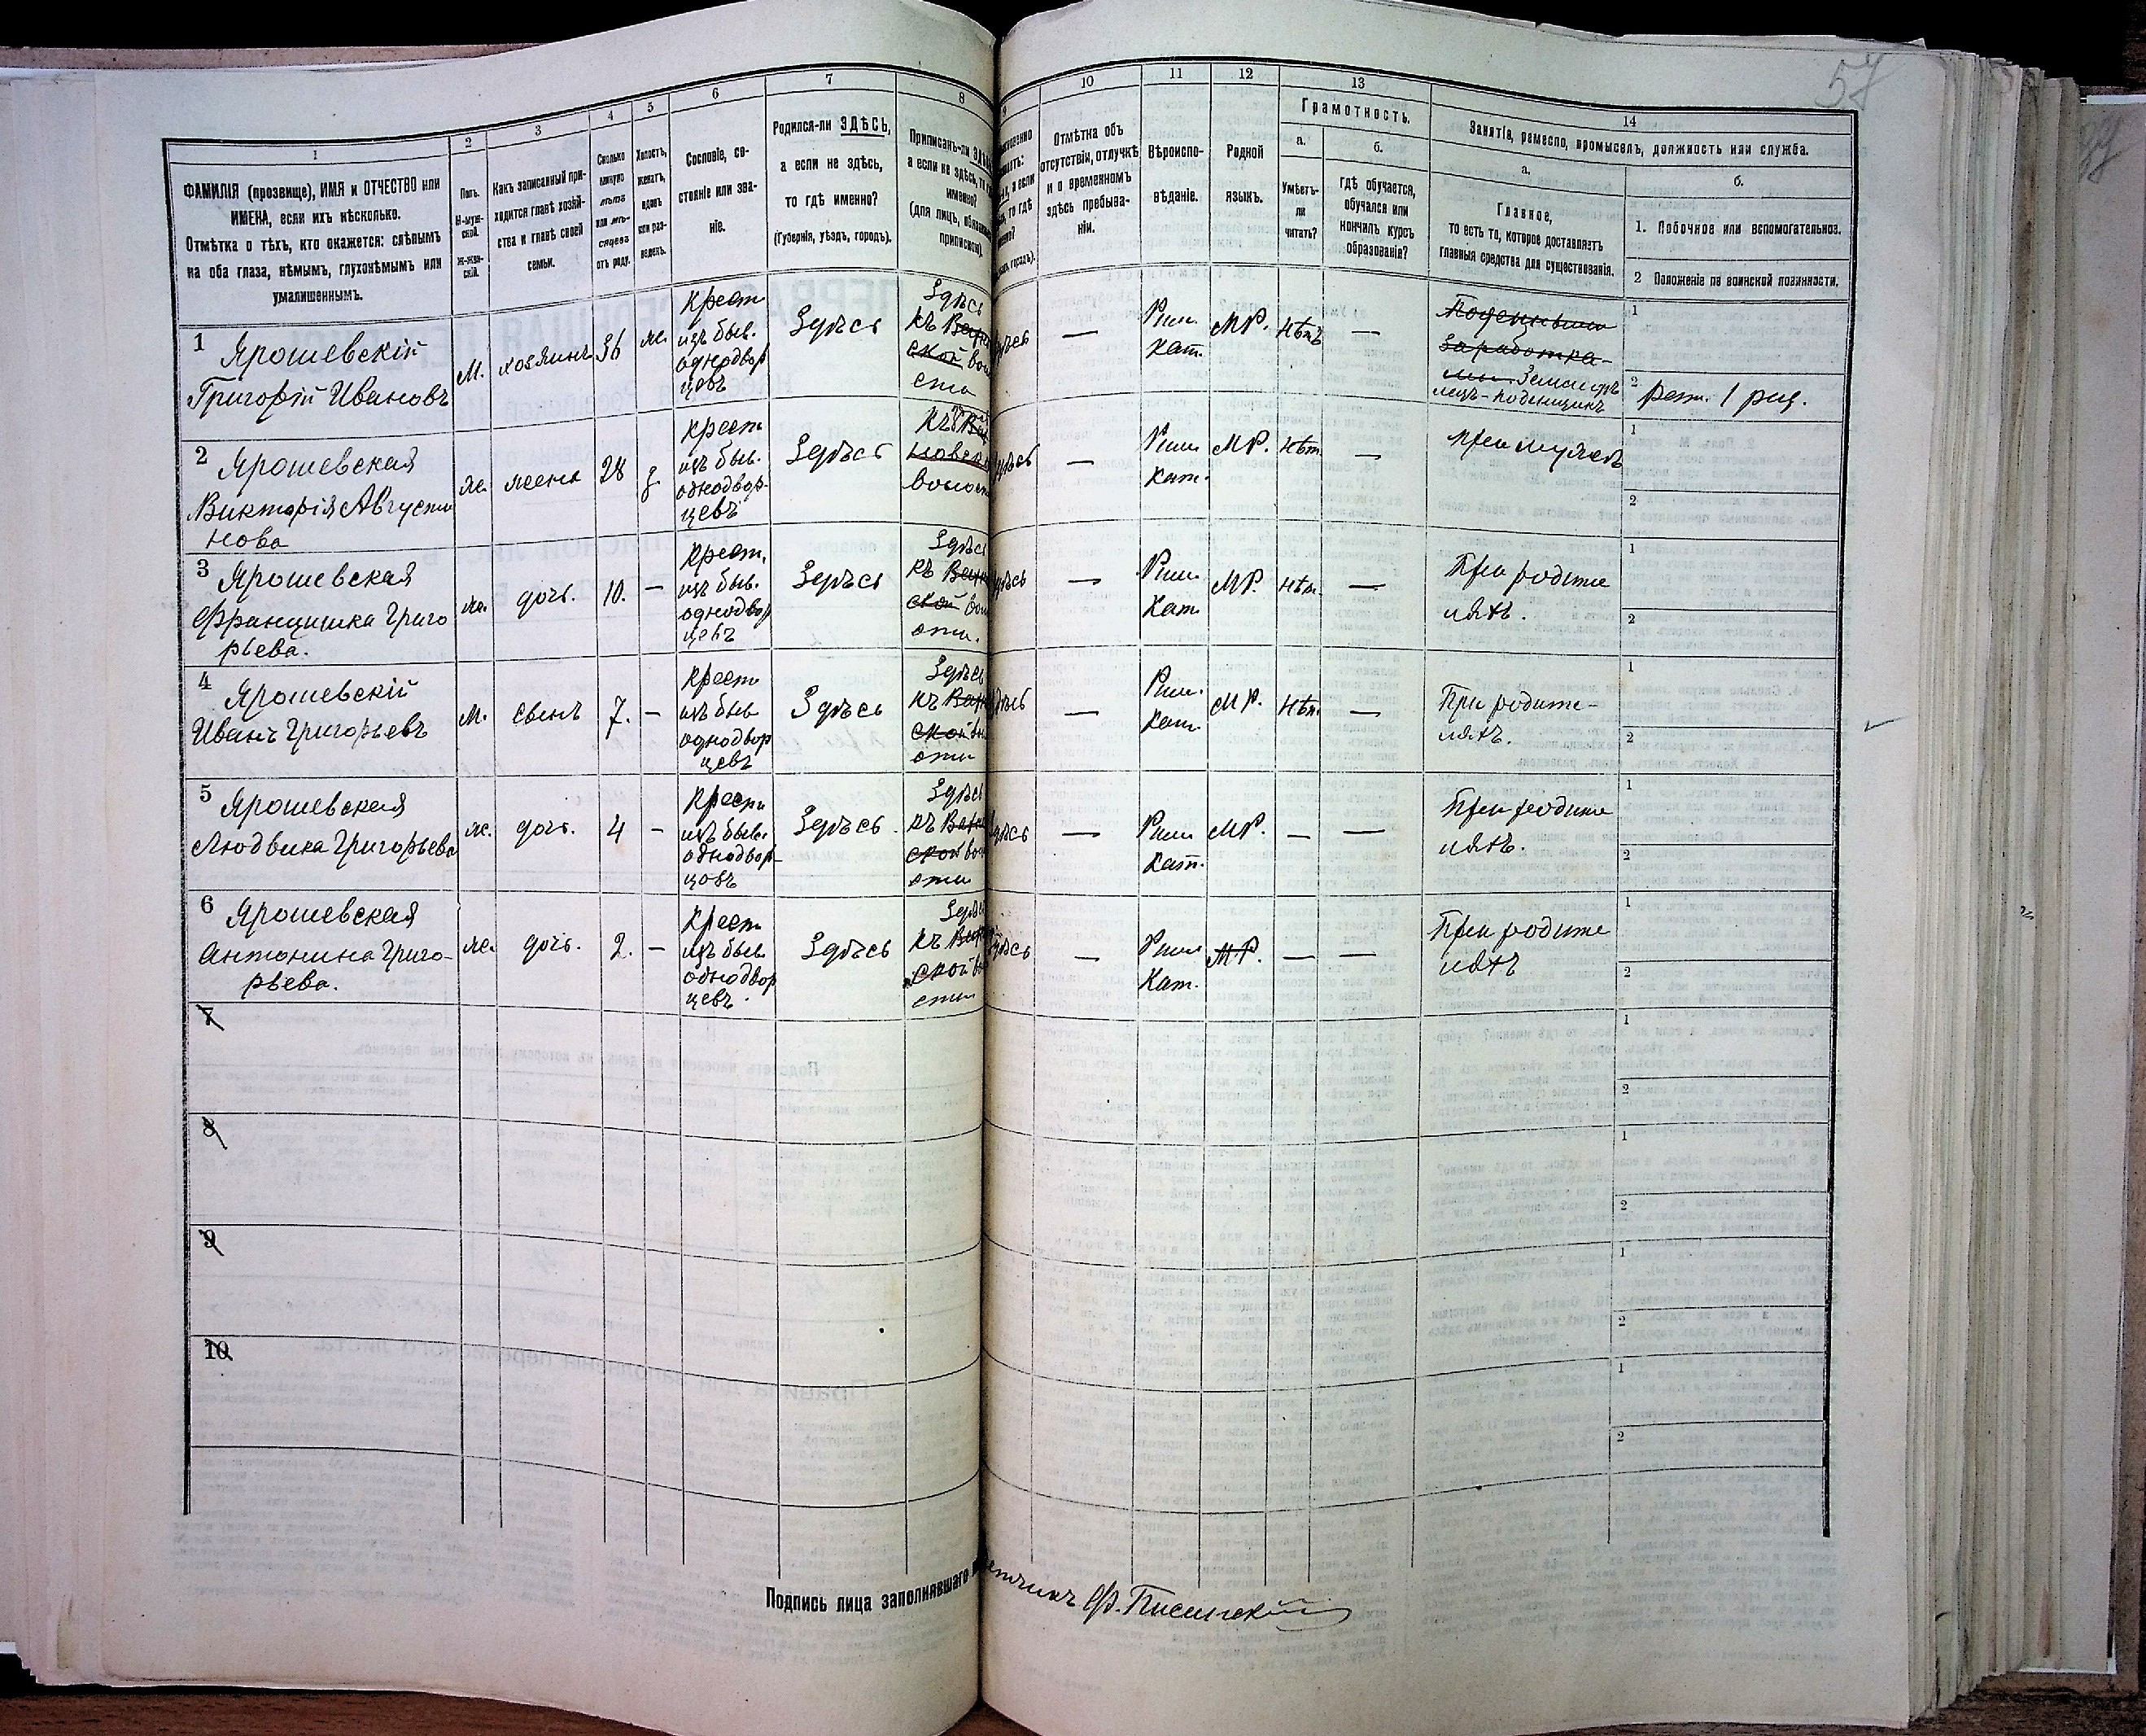 57
1
2
3
4
5
6
7
8
10
11
12
13
14
ФАМИЛІЯ (прозвище), ИМЯ и ОТЧЕСТВО или
ИМЕНА, если ихъ нѣсколько.
Отмѣтка о тѣхъ, кто окажется: слѣпымъ
на оба глаза, нѣмымъ, глухонѣмымъ или
умалишеннымъ.
Полъ.
М-муж-
ской.
Ж-жен-
скій.
Какъ записанный при-
ходится главѣ хозяй-
ства и главѣ своей
семьи.
Сколько
минуло
лѣтъ
или мѣ-
сяцевъ
отъ роду.
Холостъ,
женатъ,
вдовъ
или раз-
веденъ.
Сословіе, со-
стояніе или зва-
ніе.
Родился-ли ЗДѢСЬ,
а если не здѣсь,
то гдѣ именно?
(Губернія, уѣздъ, городъ).
Приписанъ-ли
а если не здѣсь, то
именно?
(для лицъ,
припискѣ)
Отмѣтка объ
отсутствіи, отлучкѣ
и о временномъ
здѣсь пребыва-
ніи.
Вѣроиспо-
вѣданіе.
Родной
языкъ.
Грамотность.
а.
Умѣетъ-
ли
читать?
б.
гдѣ обучается,
обучался или
кончилъ курсъ
образованія?
Занятіе, ремесло, промыселъ, должность или служба.
а.
Главное,
то есть то, которое доставляетъ
главныя средства для существованія.
б.
1. Побочное или вспомогательное.
2 Положеніе по воинской повинности.
1 Ярошевскій
Григорій Ивановъ
М.
хозяинъ
36
ж.
Крест
изъ быв.
однодвор
цевъ
Здѣсь
Здѣсь
къ
ской вол
сти
—
Рим.
Кат.
МР.
нѣтъ
—
Поденными
заработка-
ми. Земледѣ
лецъ-поденщикъ
1
2 рат. 1 раз.
2 Ярошевская
Викторія Августи
нова
ж.
жена
28
з
крест
изъ быв.
однодвор-
цевъ
Здѣсь
къ
—
Рим
Кат.
МР.
нѣт.
при мужѣ
1
2
3 Ярошевская
Францишка Григо
рьева.
ж.
дочь.
10.
—
Крест.
изъ быв.
однодвор
цевъ
Здѣсь
Здѣсь
къ
ской
—
Рим.
Кат
МР.
нѣт.
—
При родите
ляхъ.
1
2
4 Ярошевскій
Иванъ Григорьевъ
М.
сынъ
7.
—
Крест
изъ быв
однодвор
цевъ
Здѣсь
Здѣсь
къ
ской
—
Рим.
Кат.
МР.
нѣт.
—
При родите-
ляхъ.
1
2
5 Ярошевская
Людвика Григорьева
ж.
дочь.
4
—
Крест
изъ быв.
однодвор-
цовъ
Здѣсь
Здѣсь
къ
ской
—
Рим
Кат.
МР.
—
—
При родите
ляхъ.
1
2
6 Ярошевская
Антонина Григо-
рьева.
ж.
дочь.
2.
—
Крест
изъ быв.
однодвор
цевъ.
Здѣсь
Здѣсь
къ
ской
сти
—
Рим
Кат.
МР.
—
—
При родите
ляхъ
1
2
7
1
2
8
1
2
9
1
2
10
1
2
Подпись лица заполнявшаго
Ф. Писинскій